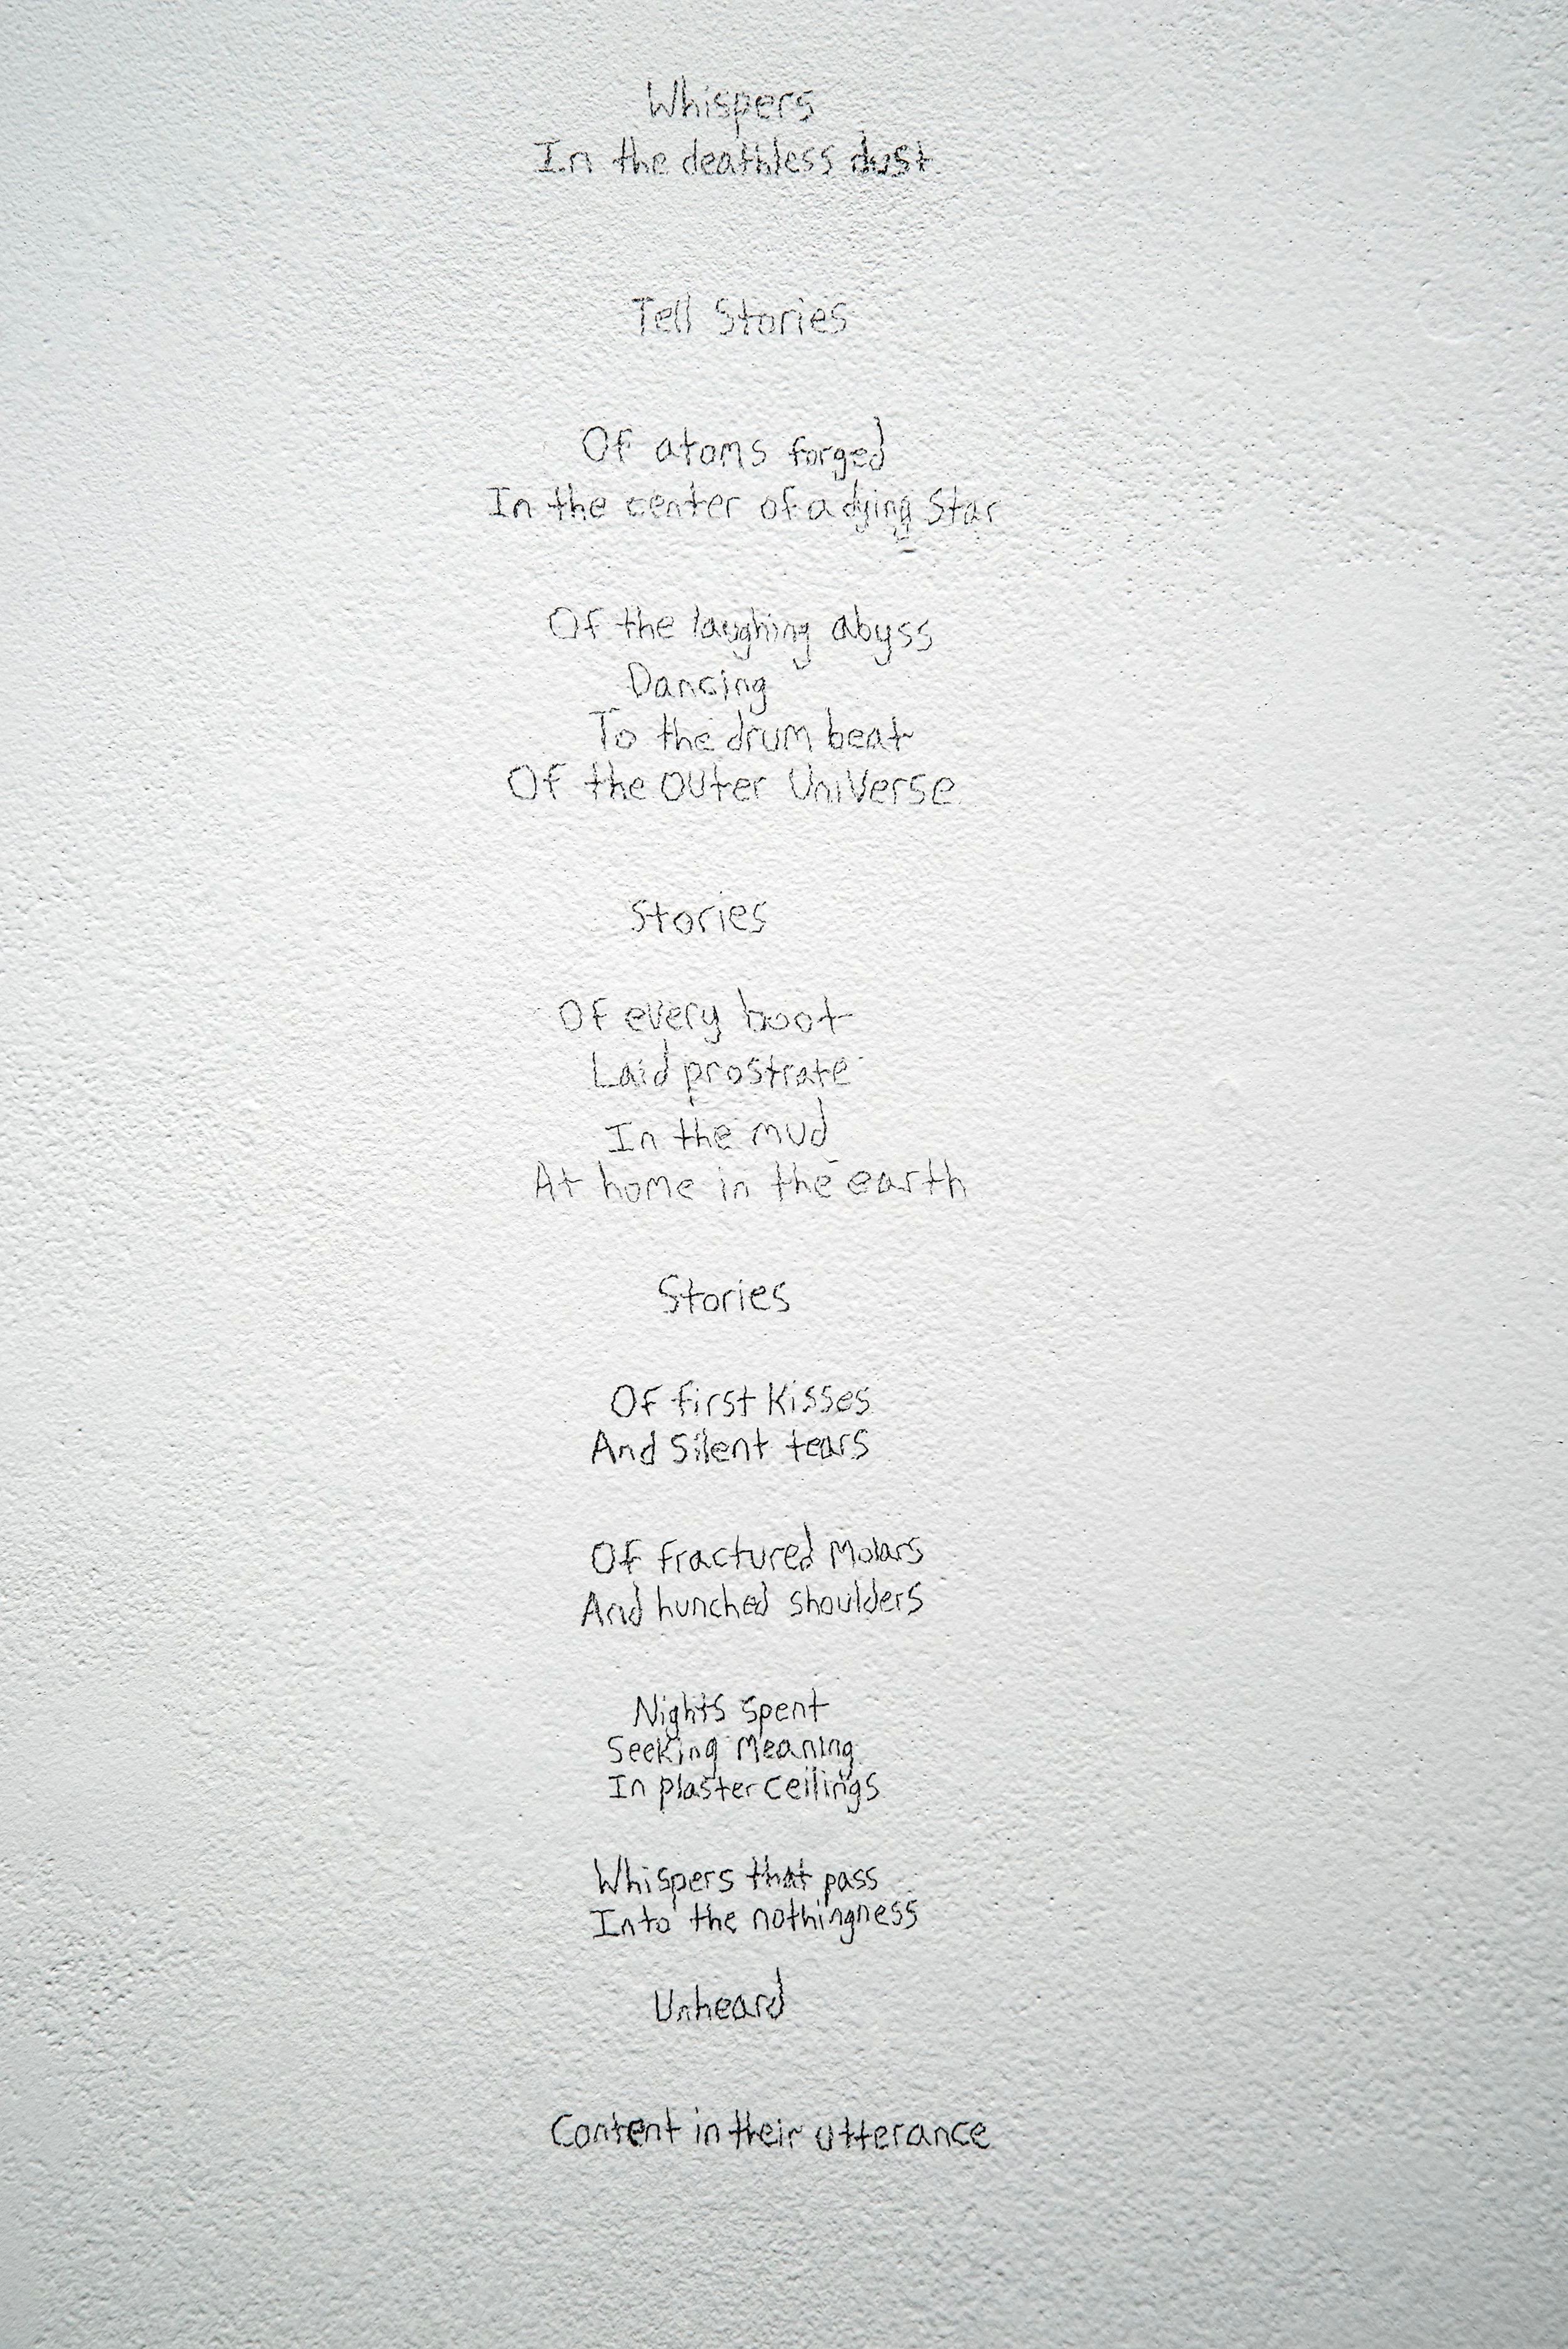 Whispers
In the deathless dust
Tell Stories
Of atoms forged
In the center of a dying Star
Of the laughing abyss
Dancing
To the drum beat
Of the outer Universe
Stories
Of every boot
Laid prostrate
In the mud
At home in the earth
Stories
Of first kisses
And Silent tears
Of fractured Molars
And hunched shoulders
Nights spent
Seeking Meaning
In plaster ceilings
Whispers that pass
Into the nothingness
Unheard
Content in their utterance